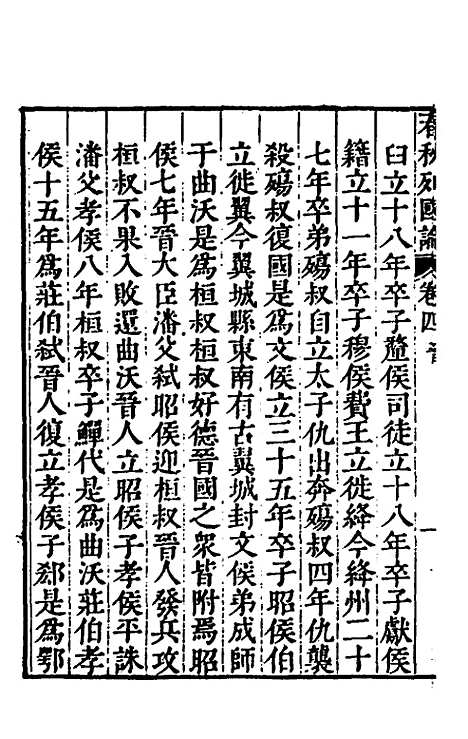 春秋列國論 卷四 晉 一
臼立十八年卒子釐侯司徒立十八年卒子獻侯
籍立十一年卒子穆侯費王立徙絳今絳州二十
七年卒弟殤叔自立太子仇出奔殤叔四年仇襲
殺殤叔復國是爲文侯立三十五年卒子昭侯伯
立徙翼今翼城縣東南有古翼城封文侯弟成師
于曲沃是爲桓叔桓叔好德晉國之衆皆附焉昭
侯七年晉大臣潘父弑昭侯迎桓叔晉人發兵攻
桓叔不果入敗還曲沃晉人立昭侯子孝侯平誅
潘父孝侯八年桓叔卒子鱓代是爲曲沃莊伯孝
侯十五年爲莊伯弑晉人復立孝侯子郄是爲鄂